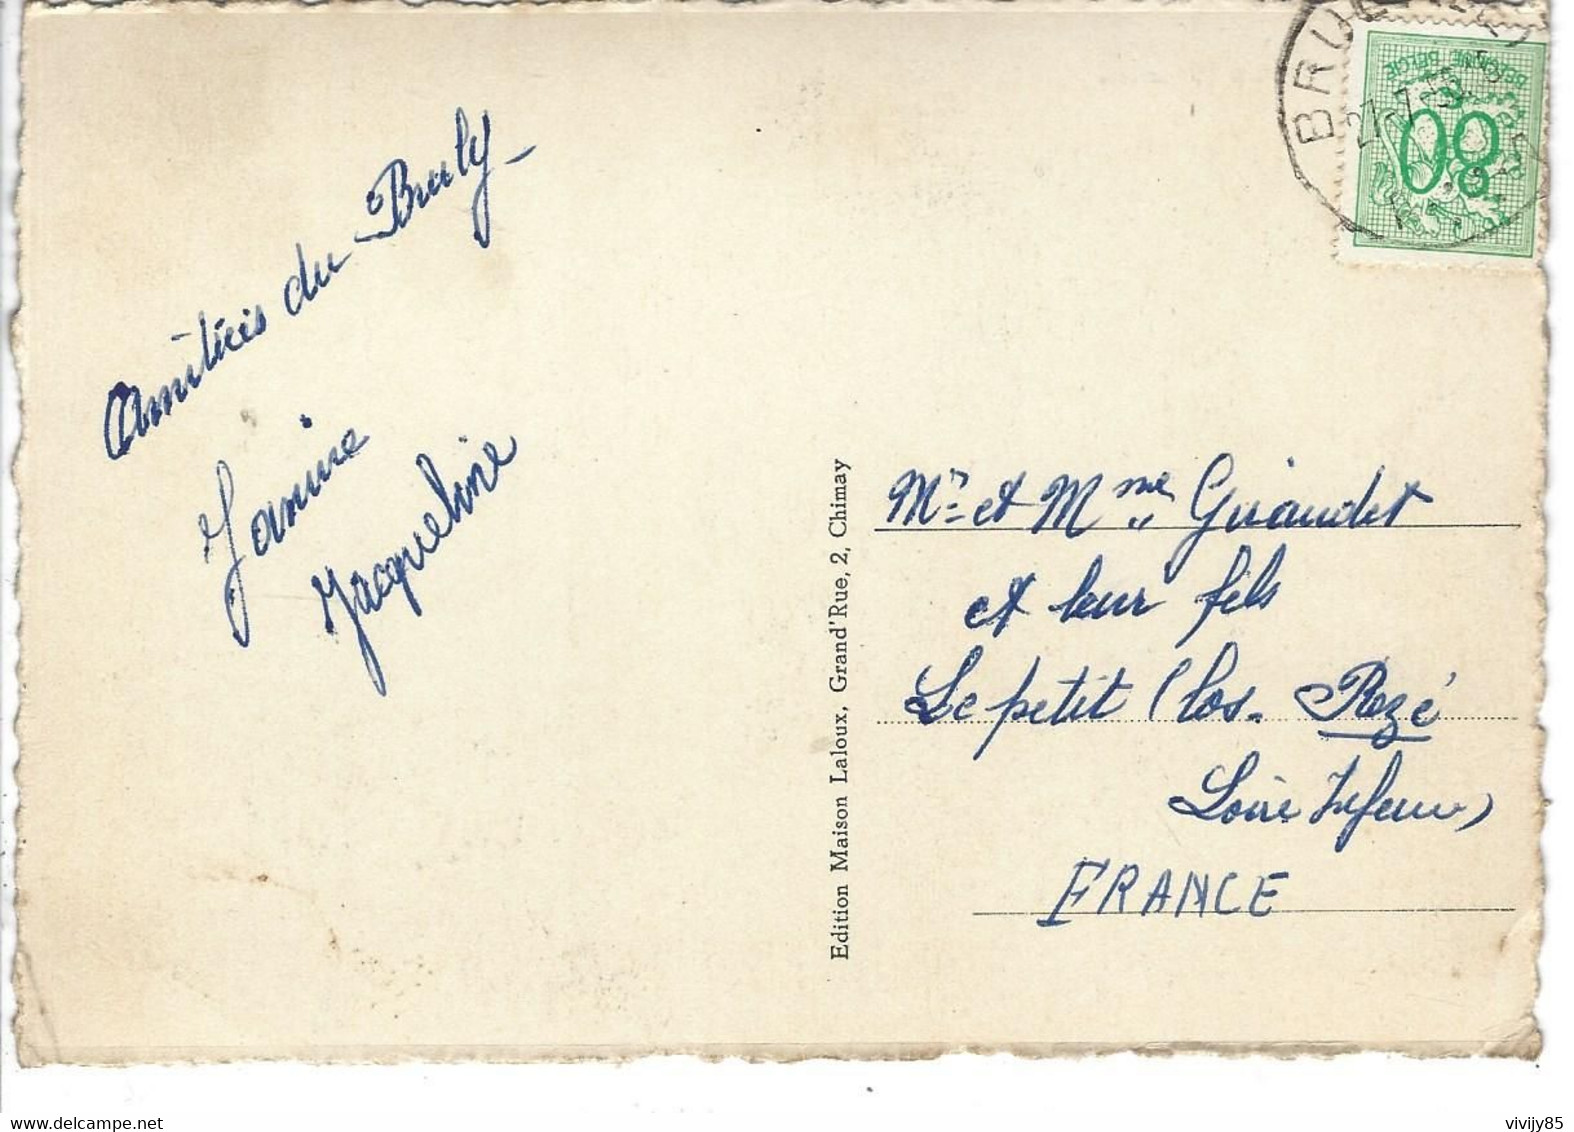 Amitiés du Bruly –
Janine
Jacqueline
Edition Maison Laloux, Grand'Rue, 2, Chimay
Mr et Mme Guiaudet
et leur fils
Le petit Clos. Rezé
Loire Inferre)
FRANCE
BELGIQUE BELGIE
80
BRU
27-7-5
vivijy85